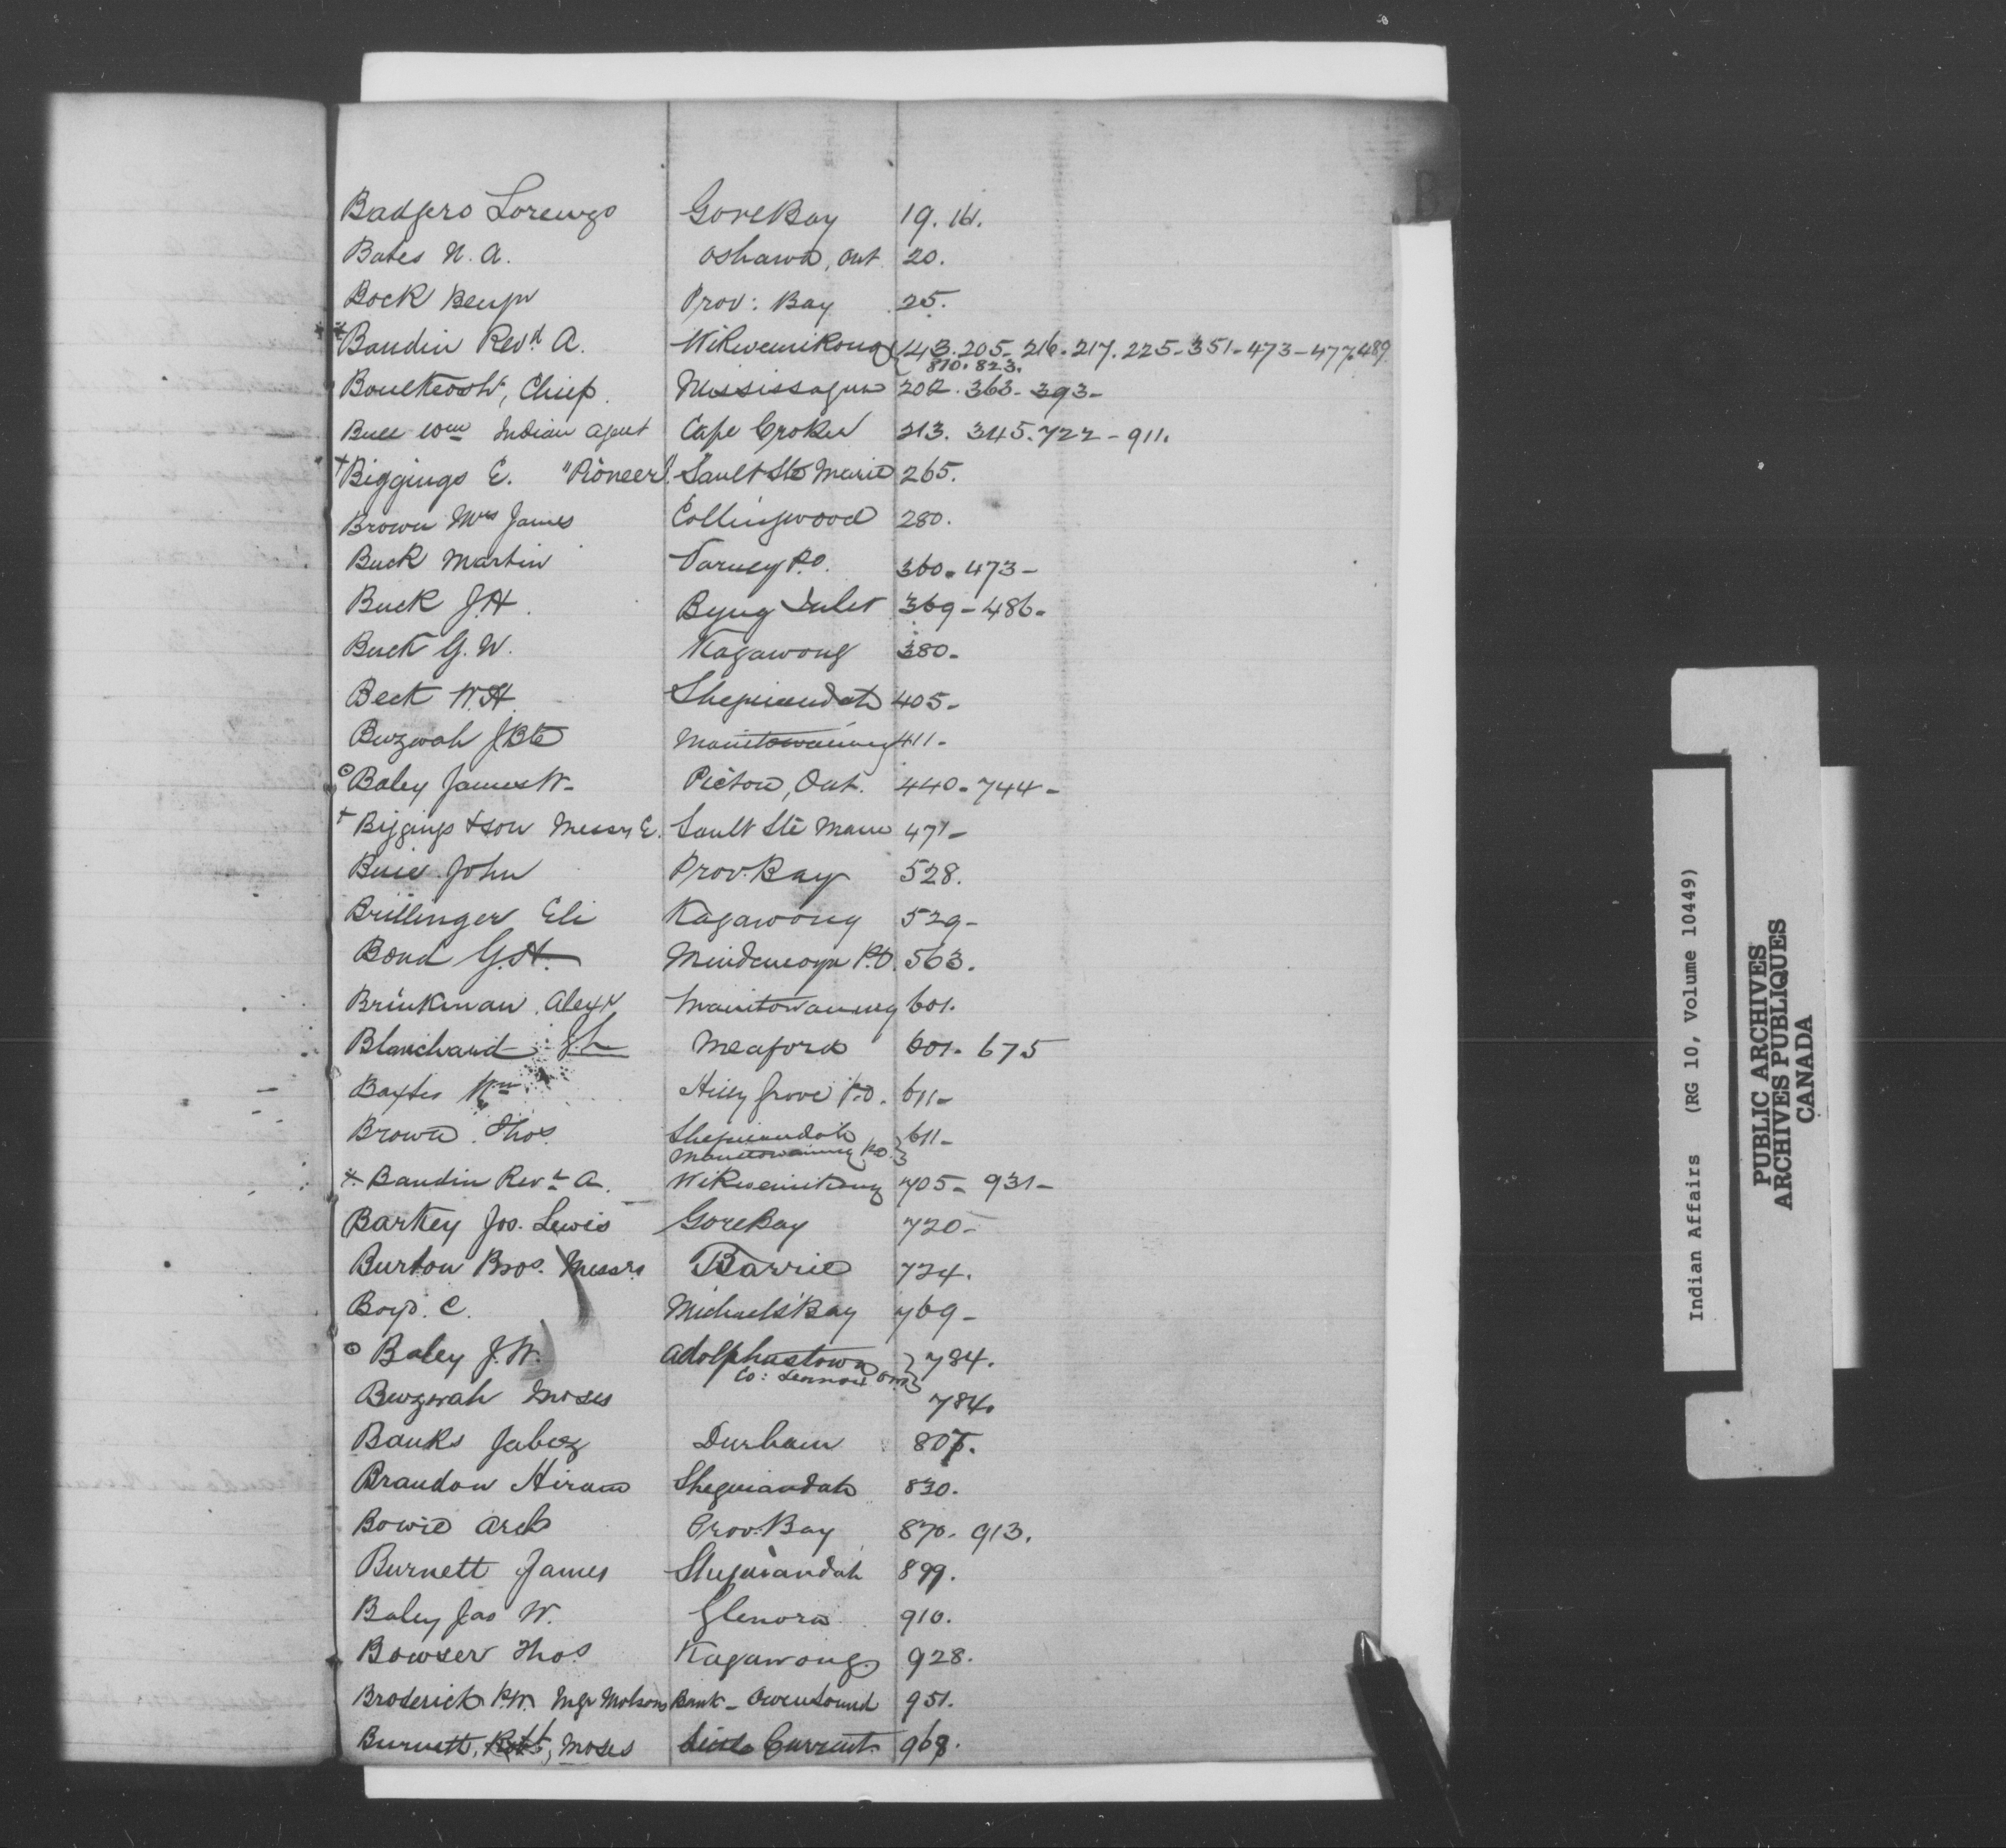 B
Badgero Lorenzo GoreBay 19. 161.
Bates N. A. Oshawa, Ont 20.
Bock Benjn Prov: Bay 25.
Baudin Revd A. Wikwemikong 143. 205- 216. 217. 225- 351- 473- 477. 489.
810. 823.
Boulkeosh, Chief. Mississagua 202. 363- 393-
Bull Wm Indian Agent Cape Croker 213. 345. 722- 911.
+ Biggings E. "Pioneer" Sault Ste Marie 265.
Brown Mrs James Collingwood 280.
Buck Martin Varney P.O. 360. 473-
Buck J.H. Byng Inlet 369- 486-
Buck G. W. Kagawong 380-
Beck W.H. Sheguiandah 405-
Buzwah J Bte Manitowaning 411-
Baley James W- Picton, Ont. 440- 744-
+ Biggings & Son Messrs E. Sault Ste Marie 471-
Buie John Prov. Bay 528.
Brillinger Eli Kagawong 529-
Bond G.H. Mindemoya P.O. 563.
Brinkman Alexr Manitowaning 601.
Blanchard Meaford 601. 675
Baxter Wm Hilly Grove P.O. 611-
Brown Thos Sheguiandah 611-
Manitowaning P.O.
+ Baudin Revd A. Wikwemikong 705- 931-
Barkey Jos. Lewis GoreBay 720-
Burton Bros. Messrs Barrie 724.
Boyd. C. Michael's Bay 769-
Baley J. W. Adolphustown 784.
Co: Lennox Ont
Buzwah Moses 784.
Banks Jabez Durham 807.
Brandon Hiram Sheguiandah 830.
Bowie Arch Prov. Bay 870. 913.
Burnett James Sheguiandah 899.
Baley Jas W. Glenora 910.
Bowser Thos Kagawong 928.
Broderick P.W. Mgr Molsons Bank- Owen Sound 951.
Burnett, Robt, Moses Little Current 968.
Indian Affairs (RG 10, Volume 10449)
PUBLIC ARCHIVES
ARCHIVES PUBLIQUES
CANADA